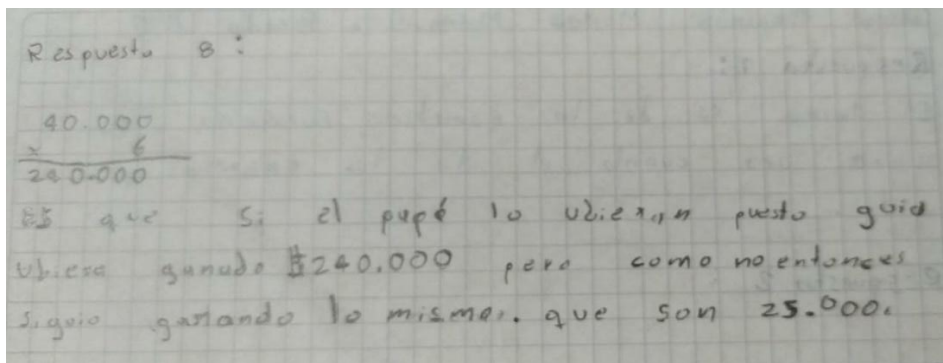 Respuesta 8:
40.000
x 6
240.000
ES que si el papá lo ubieran puesto guia
ubiera ganado $240.000 pero como no entonces
siguio ganando lo mismo. que son 25.000.